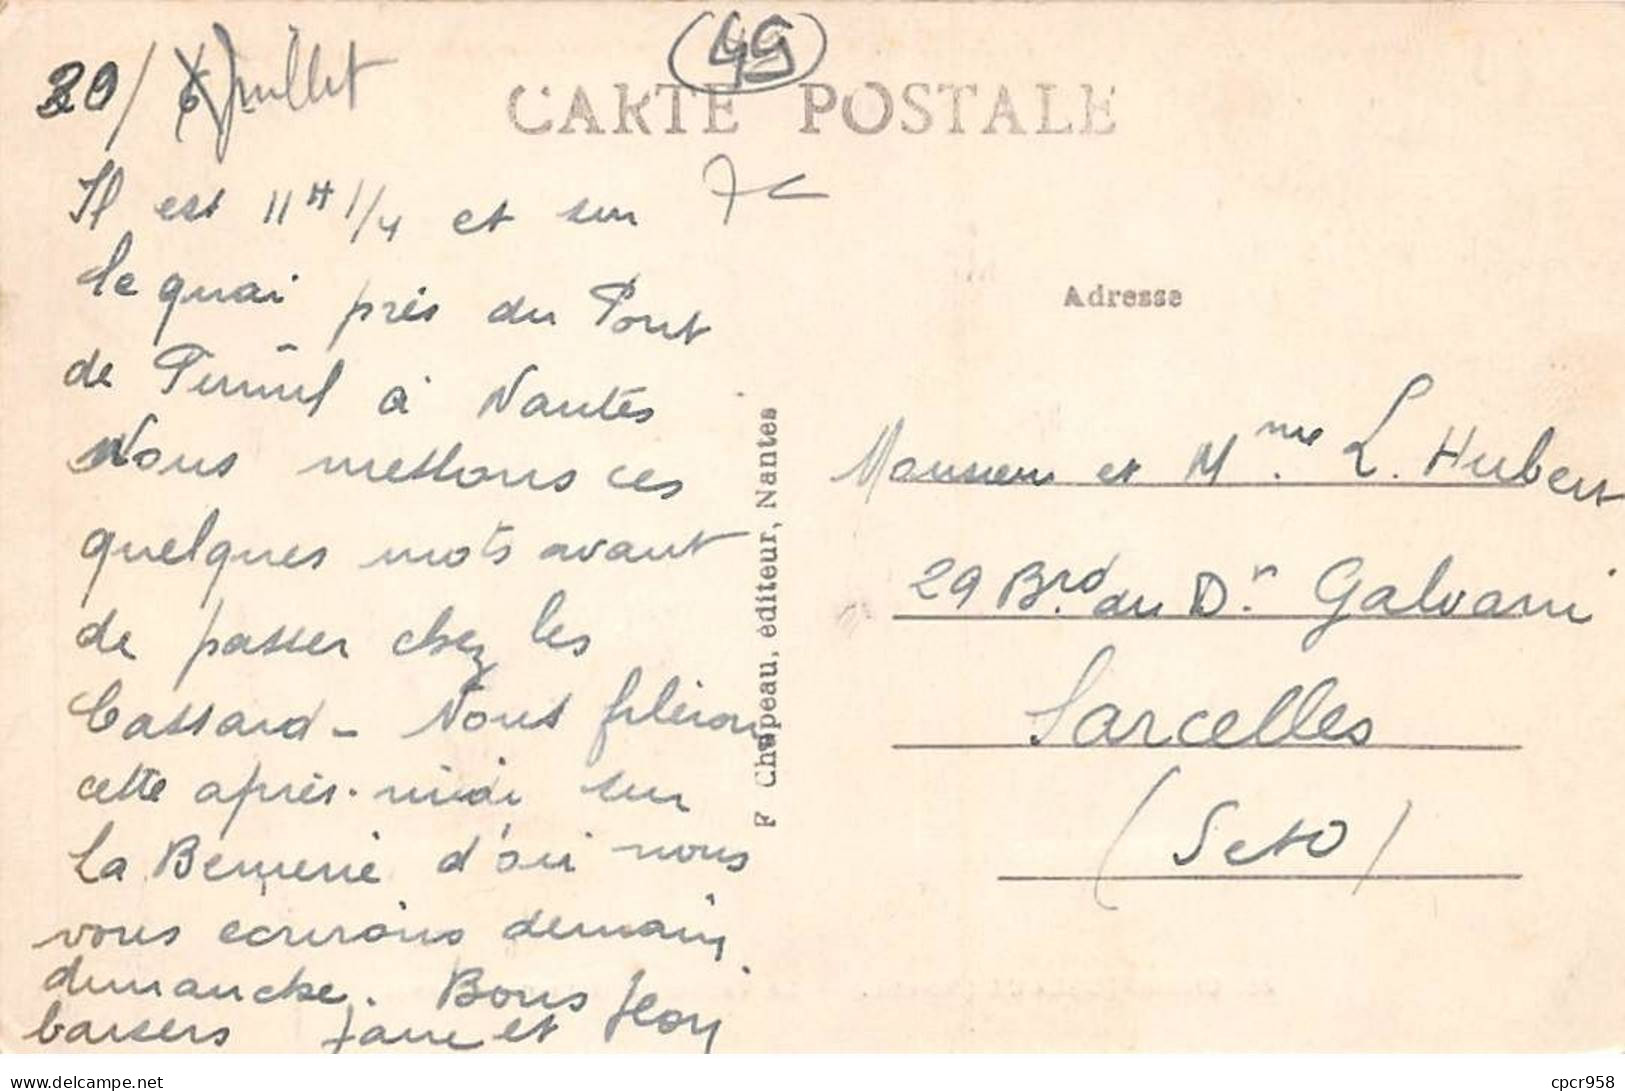 49
CARTE POSTALE
20/ Juillet
7c
Il est 11H 1/4 et sur
le quai près du Pont
de Pirmil à Nantes
Nous mettons ces
quelques mots avant
de passer chez les
Cassard - Nous filerons
cette après-midi sur
La Bernerie d'où nous
vous écrirons demain
dimanche. Bons
baisers et
F Chapeau, éditeur, Nantes
Adresse
Monsieur et Mme. L. Hubert
29 Brd. du Dr. Galvani
Sarcelles
(S et O)
cpcr958
delcampe.net